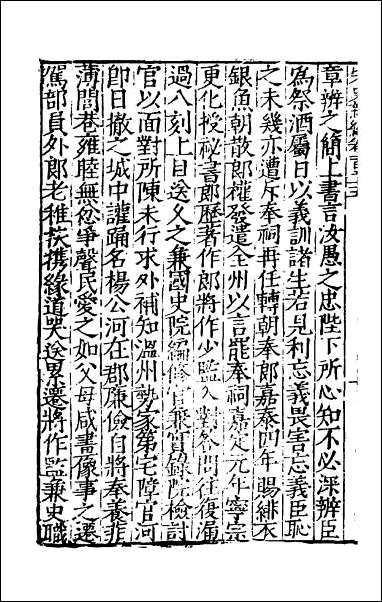 章辨之簡上書言汝愚之忠陛下所心知不必深辨臣
爲祭酒屬日以義訓諸生若見利忘義畏害忘義臣恥
之未幾亦遭斥奉祠再任轉朝奉郎嘉泰四年賜緋衣
銀魚朝散郎權發遣全州以言罷奉祠嘉定元年寧宗
更化授祕書郎歷著作郎將作少監入對答問往復漏
過八刻上目送久之兼國史院編修官兼實錄院檢討
官以面對所陳未行求外補知溫州勢家第宅障官河
卽日撤之城中讙踊名楊公河在郡廉儉自將奉養菲
薄閭巷雍睦無忿爭聲民愛之如父母咸畫像事之遷
駕部員外郎老稚扶攜緣道哭送累遷將作監兼史職